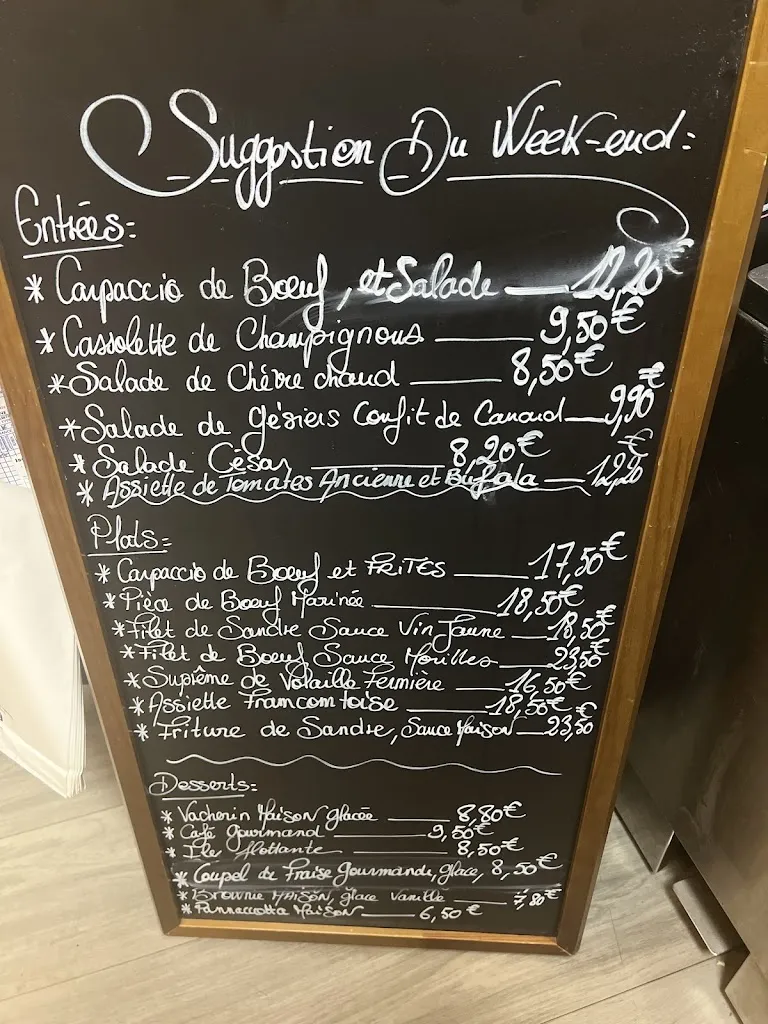 Suggestion Du Week-end:
Entrées:
* Carpaccio de Bœuf, et Salade — 12,20€
* Cassolette de Champignons — 9,50€
* Salade de Chèvre chaud — 8,50€
* Salade de gésiers Confit de Canard — 9,90€
* Salade César — 8,20€
* Assiette de Tomates Ancienne et Bufala — 12,20€
Plats:
* Carpaccio de Bœuf et FRITES — 17,50€
* Pièce de Bœuf Marinée — 18,50€
* Filet de Sandre Sauce Vin Jaune — 18,50€
* Filet de Bœuf Sauce Morilles — 23,50€
* Suprême de Volaille Fermière — 16,50€
* Assiette Francomtoise — 18,50€
* Friture de Sandre, Sauce Maison — 23,50€
Desserts:
* Vacherin Maison glacée — 8,80€
* Café gourmand — 9,50€
* Ile flottante — 8,50€
* Coupel de Fraise Gourmande, glace, 8,50€
* Brownie MAISON, glace Vanille — 7,80€
* Pannacotta Maison — 6,50€